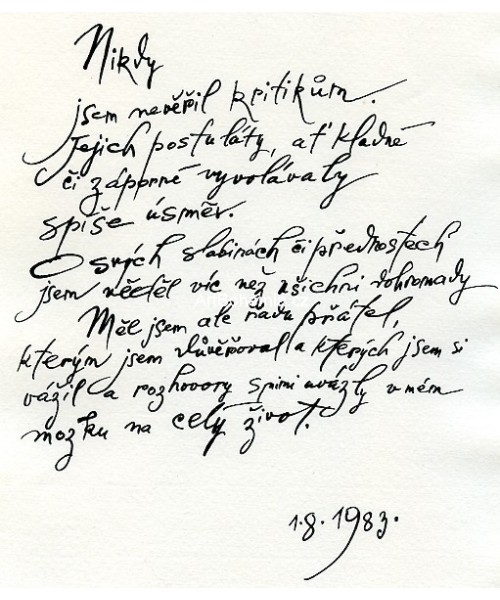 Nikdy
jsem nevěřil kritikům.
Jejich postuláty, ať kladné
či záporné vyvolávaly
spíše úsměv.
O svých slabinách či přednostech
jsem věděl víc než všichni dohromady
Měl jsem ale řadu přátel,
kterým jsem důvěřoval a kterých jsem si
vážil a rozhovory s nimi uvázly v mém
mozku na celý život.
1.8.1983.